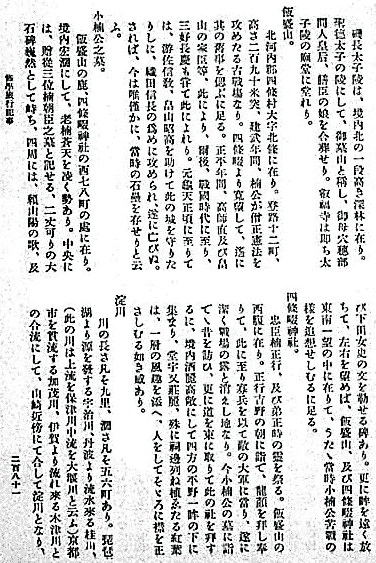 磯長太子陵は、境内北の一段高き深林に在り。
聖德太子の陵にして、御墓山と稱し、御母穴穗部
間人皇后、膳臣の娘を合葬せり。叡福寺は即ち太
子陵の廟堂に堂れり。
飯盛山。
北河內郡四條村大字北條に在り。登路十二町、
高さ二百九十米突、建武年間、楠公が僧正憲法を
攻めたる古戰場なり。四條畷より寬望して、遙に
其の舊事を偲ぶに足る。正平年間、高師直及び畠
山の家臣等、此により、爾後、戰國時代に至り、
三好長慶も嘗て此によれり。元龜天正頃に至りて
は、游佐信敎、畠山昭高を助けて此の城を守りた
りしに、織田信長の爲めに攻められ、遂に亡びぬ。
されば、今は唯僅かに、當時の石壘を存せりと云
ふ。
小楠公之墓。
飯盛山の麓、四條畷神社の西七八町の處に在り。
境內宏濶にして、老楠蒼天を凌ぐ勢あり。中央に
は、贈從三位楠朝臣之墓と記せる、二丈可りの大
石碑巍然として峙ち、四周には、賴山陽の歌、及
修學旅行記事
び下田女史の文を勒せる碑あり。更に眸を遠く放
ちて、左右を望めば、飯盛山、及び四條畷神社は
東南一望の中に在りて、うたゝ當時小楠公苦戰の
樣を追想せしむるに足る。
四條畷神社。
忠臣楠正行、及び弟正時の靈を祭る。飯盛山の
西腹に在り。正行吉野の朝に詣で、龍顏を拜し奉
りて、此に至り寡兵を以て敵の大軍に當り、遂に
潔く戰場の露と消えし地なり。今小楠公の墓に詣
で、昔を訪ひ、更に道を東に取りて此の社を拜す
るに、境內洒麗高敞にして四方の平野一眸の下に
集まり、堂宇又莊麗、殊に祠邊列ね植ゑたる紅葉
は、一層の風趣を添へ、人をしてそゞろに襟を正
さしむるの如き威あり。
淀川
川の長さ凡そ九里、濶さ凡そ五六町あり。琵琶
湖より源を發する宇治川、丹波より流水來る桂川、
(此の川は上流を保津川中流を大堰川と云ふ)京都
市を貫流する加茂川、伊賀より流れ來る木津川と
の合流にして、山崎近傍にて合して淀川となり、
二百八十一